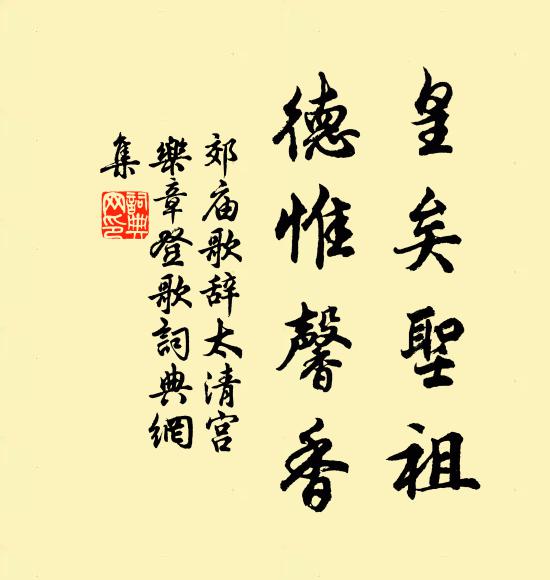 皇矣聖祖
德惟馨香
郊庙歌辞太清宫
樂章登歌詞典網
集
詞典
网印